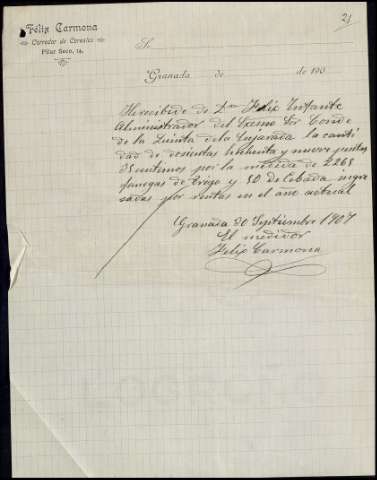 Félix Carmona
Corredor de Cereales
Pilar Seco, 14.
21
S
Granada de de 190
He recibido de Dn Felix Infante
Administrador del Exsmo Sor Conde
de la Quinta de la Enjarada la canti
dad de docientas y nueve pesetas
35 centimos por la medida de 2265
fanegas de Trigo y 50 de Cebada ingre
sadas por rentas en el año actual
Granada 30 Septiembre 1907
El medidor
Felix Carmona